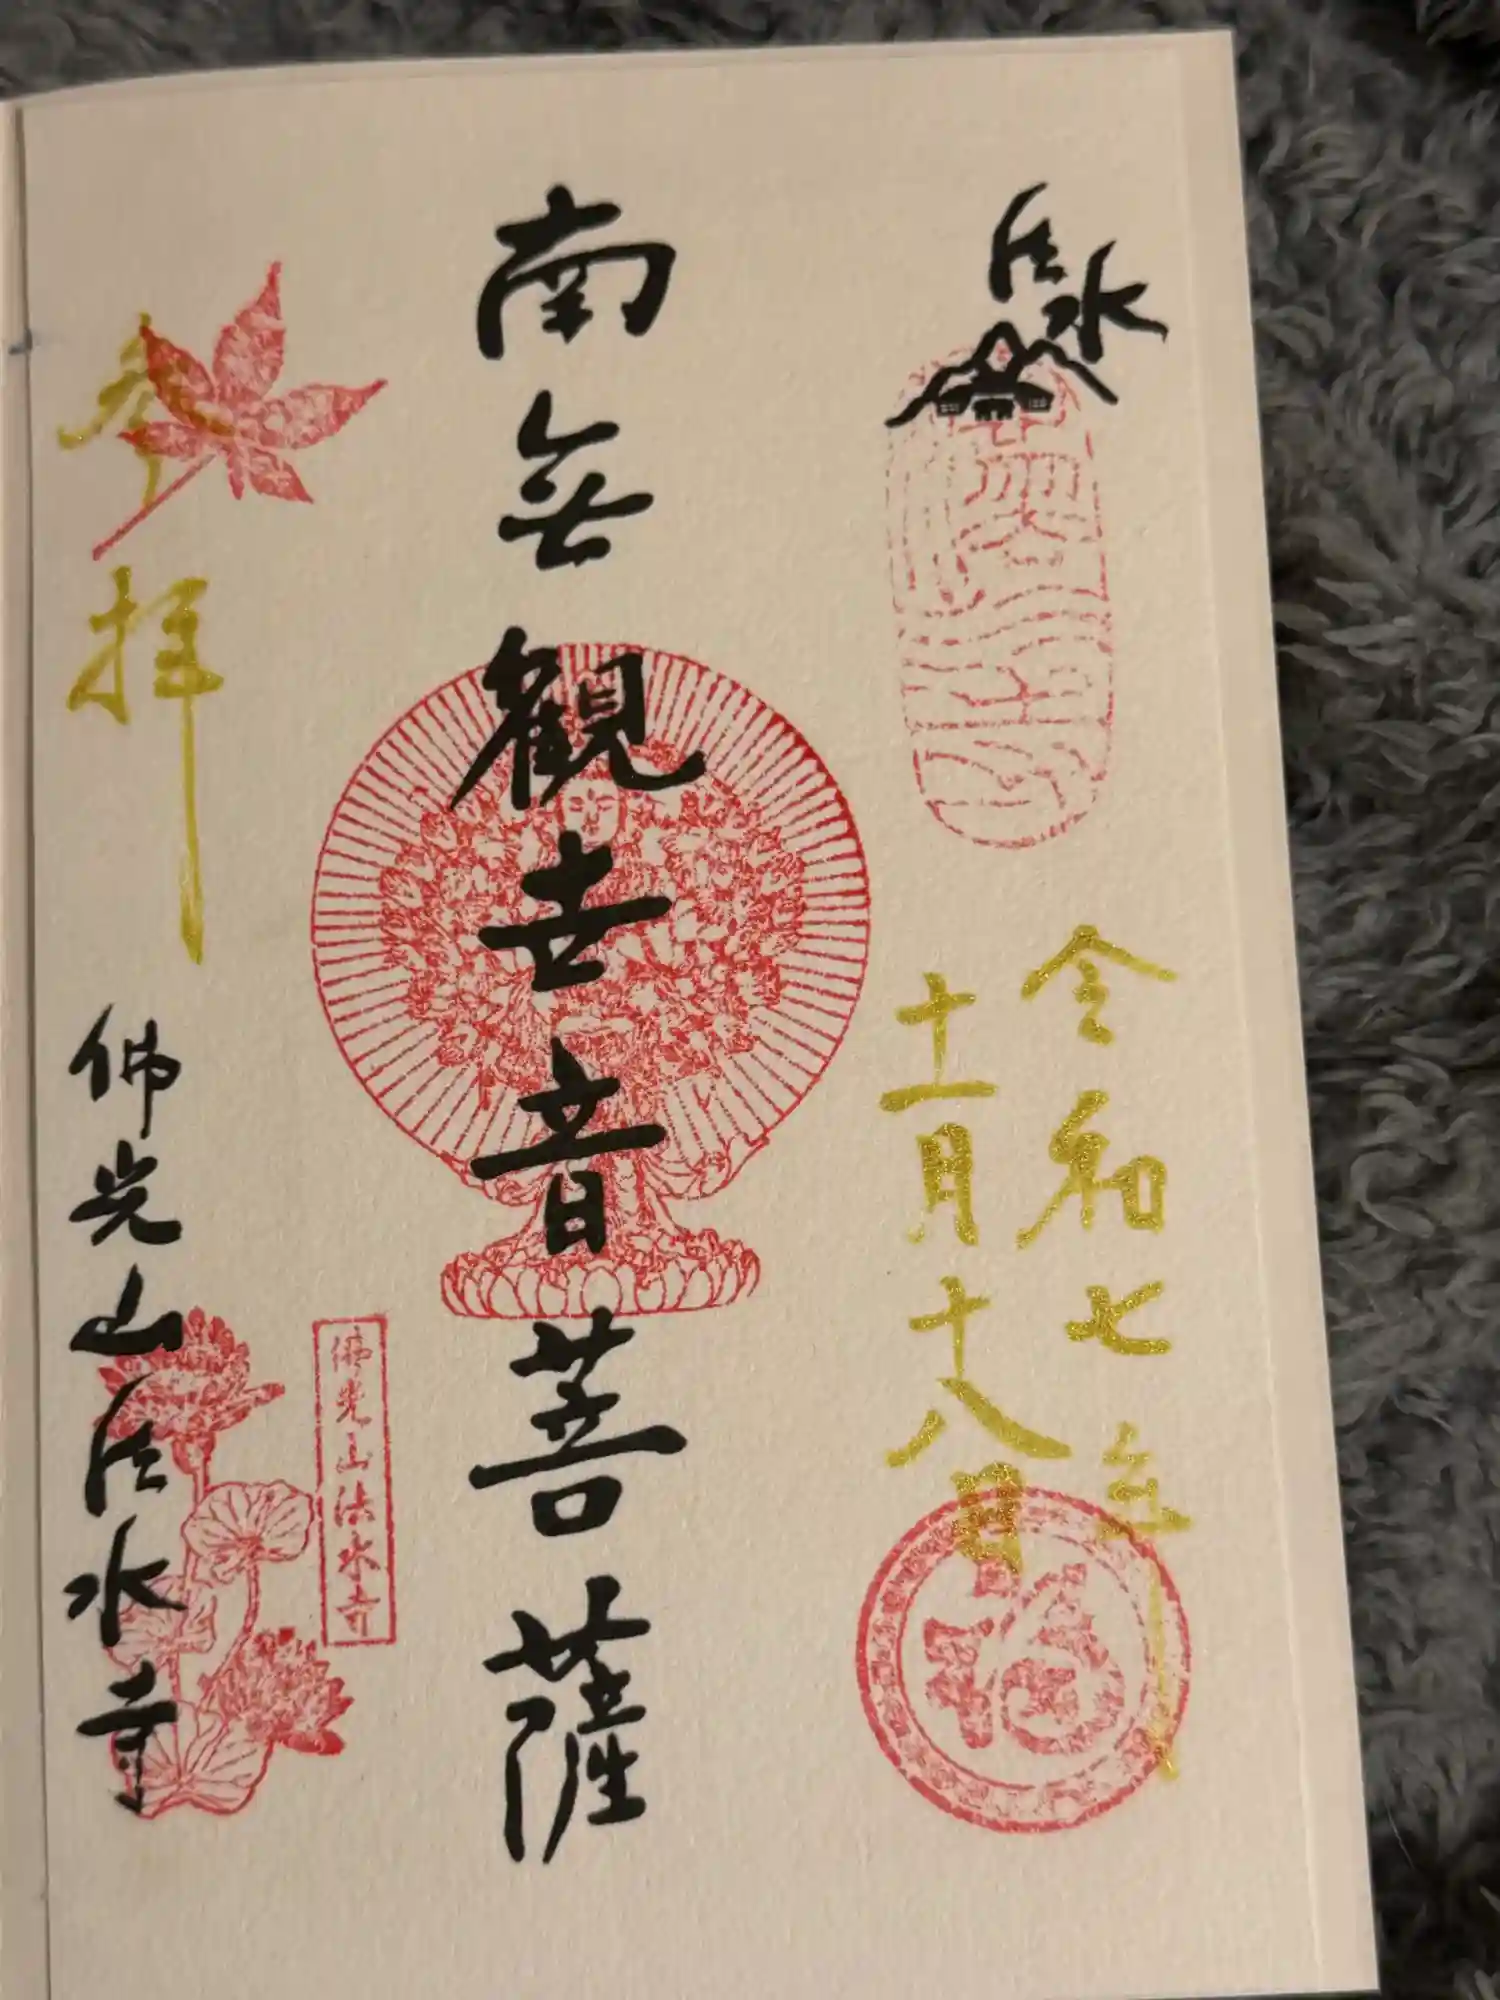 法水
令和七年
十一月十八日
福
南無觀世音菩薩
奉拝
佛光山法水寺
佛光山法水寺